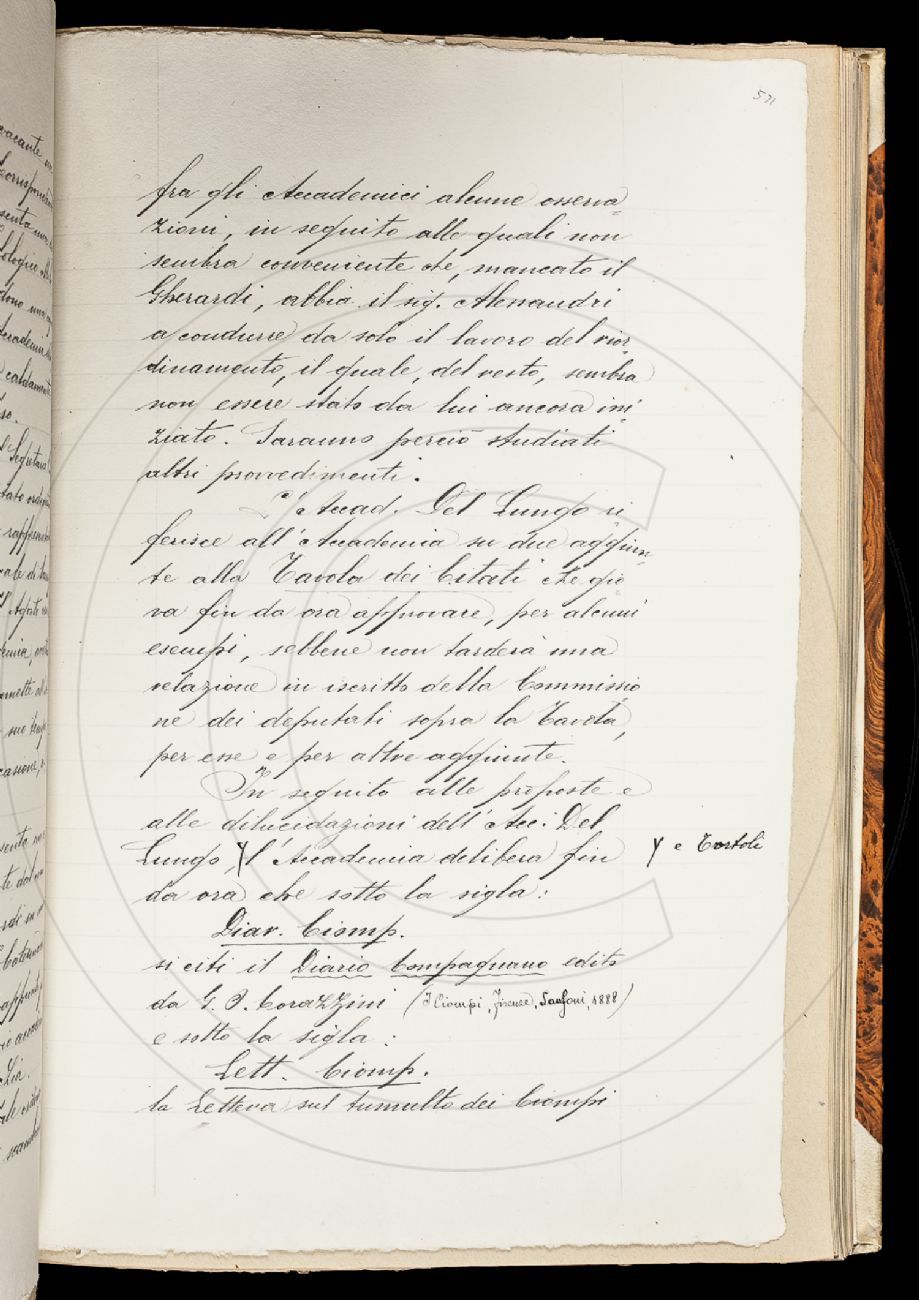 571
fra gli Accademici alcune osserva=
zioni, in seguito alle quali non
sembra conveniente che, mancato il
Gherardi, abbia il sig. Alessandri
a condurre da solo il lavoro del rior=
dinamento, il quale, del resto, sembra
non essere stato da lui ancora ini=
ziato. Saranno perciò studiati
altri provvedimenti.
L'Accad. Del Lungo ri=
ferisce all'Accademia su due aggiun=
te alla Tavola dei Citati che gio=
va fin da ora approvare, per alcuni
esempi, sebbene non tarderà una
relazione in iscritto della Commissio=
ne dei deputati sopra la Tavola,
per esse e per altre aggiunte.
In seguito alle proposte e
alle dilucidazioni dell'Acc. Del
Lungo, γ l'Accademia delibera fin
γ e Tortoli
da ora che sotto la sigla:
Diar. Ciomp.
si citi il Diario Compagnano edito
da G. O. Corazzini (I Ciompi, Firenze, Sansoni, 1888)
e sotto la sigla:
Lett. Ciomp.
la Lettera sul tumulto dei Ciompi